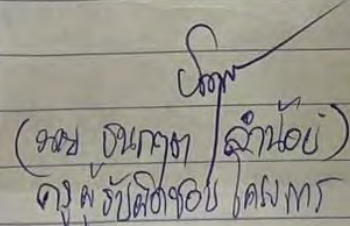 (นาย ธนกฤต สำน้อย)
ครูผู้รับผิดชอบโครงการ